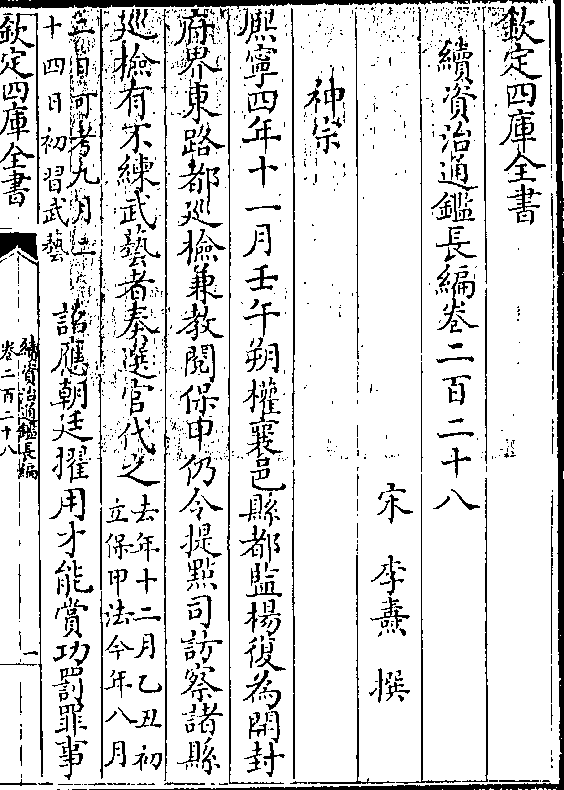 欽定四庫全書
續資治通鑑長編卷二百二十八
宋 李燾 撰
神宗
熙寧四年十一月壬午朔權襄邑縣都監楊復為開封
府界東路都廵檢兼教閲保甲仍令提點司訪察諸縣
廵檢有不練武藝者奏選官代之
去年十二月乙丑初
立保甲法今年八月
五日可考九月
十四日初習武藝
詔應朝廷擢用才能賞功罰罪事
欽定四庫全書
續資治通鑑長編
卷二百二十八
一